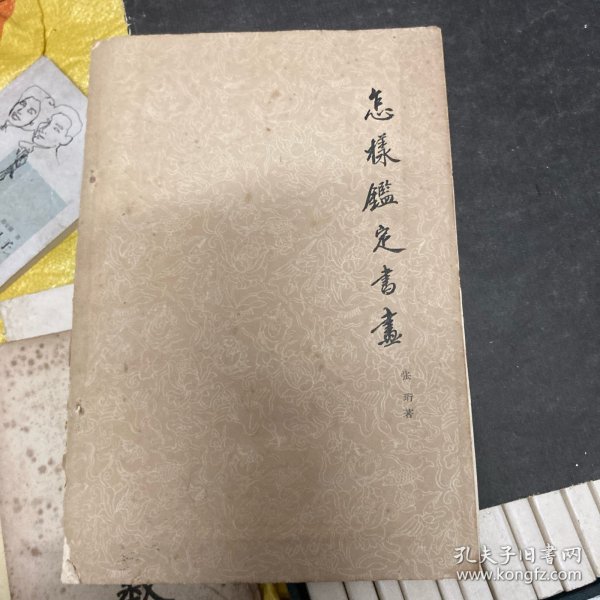 怎樣鑑定書畫
张珩著
孔夫子旧书网
www.kongfz.com